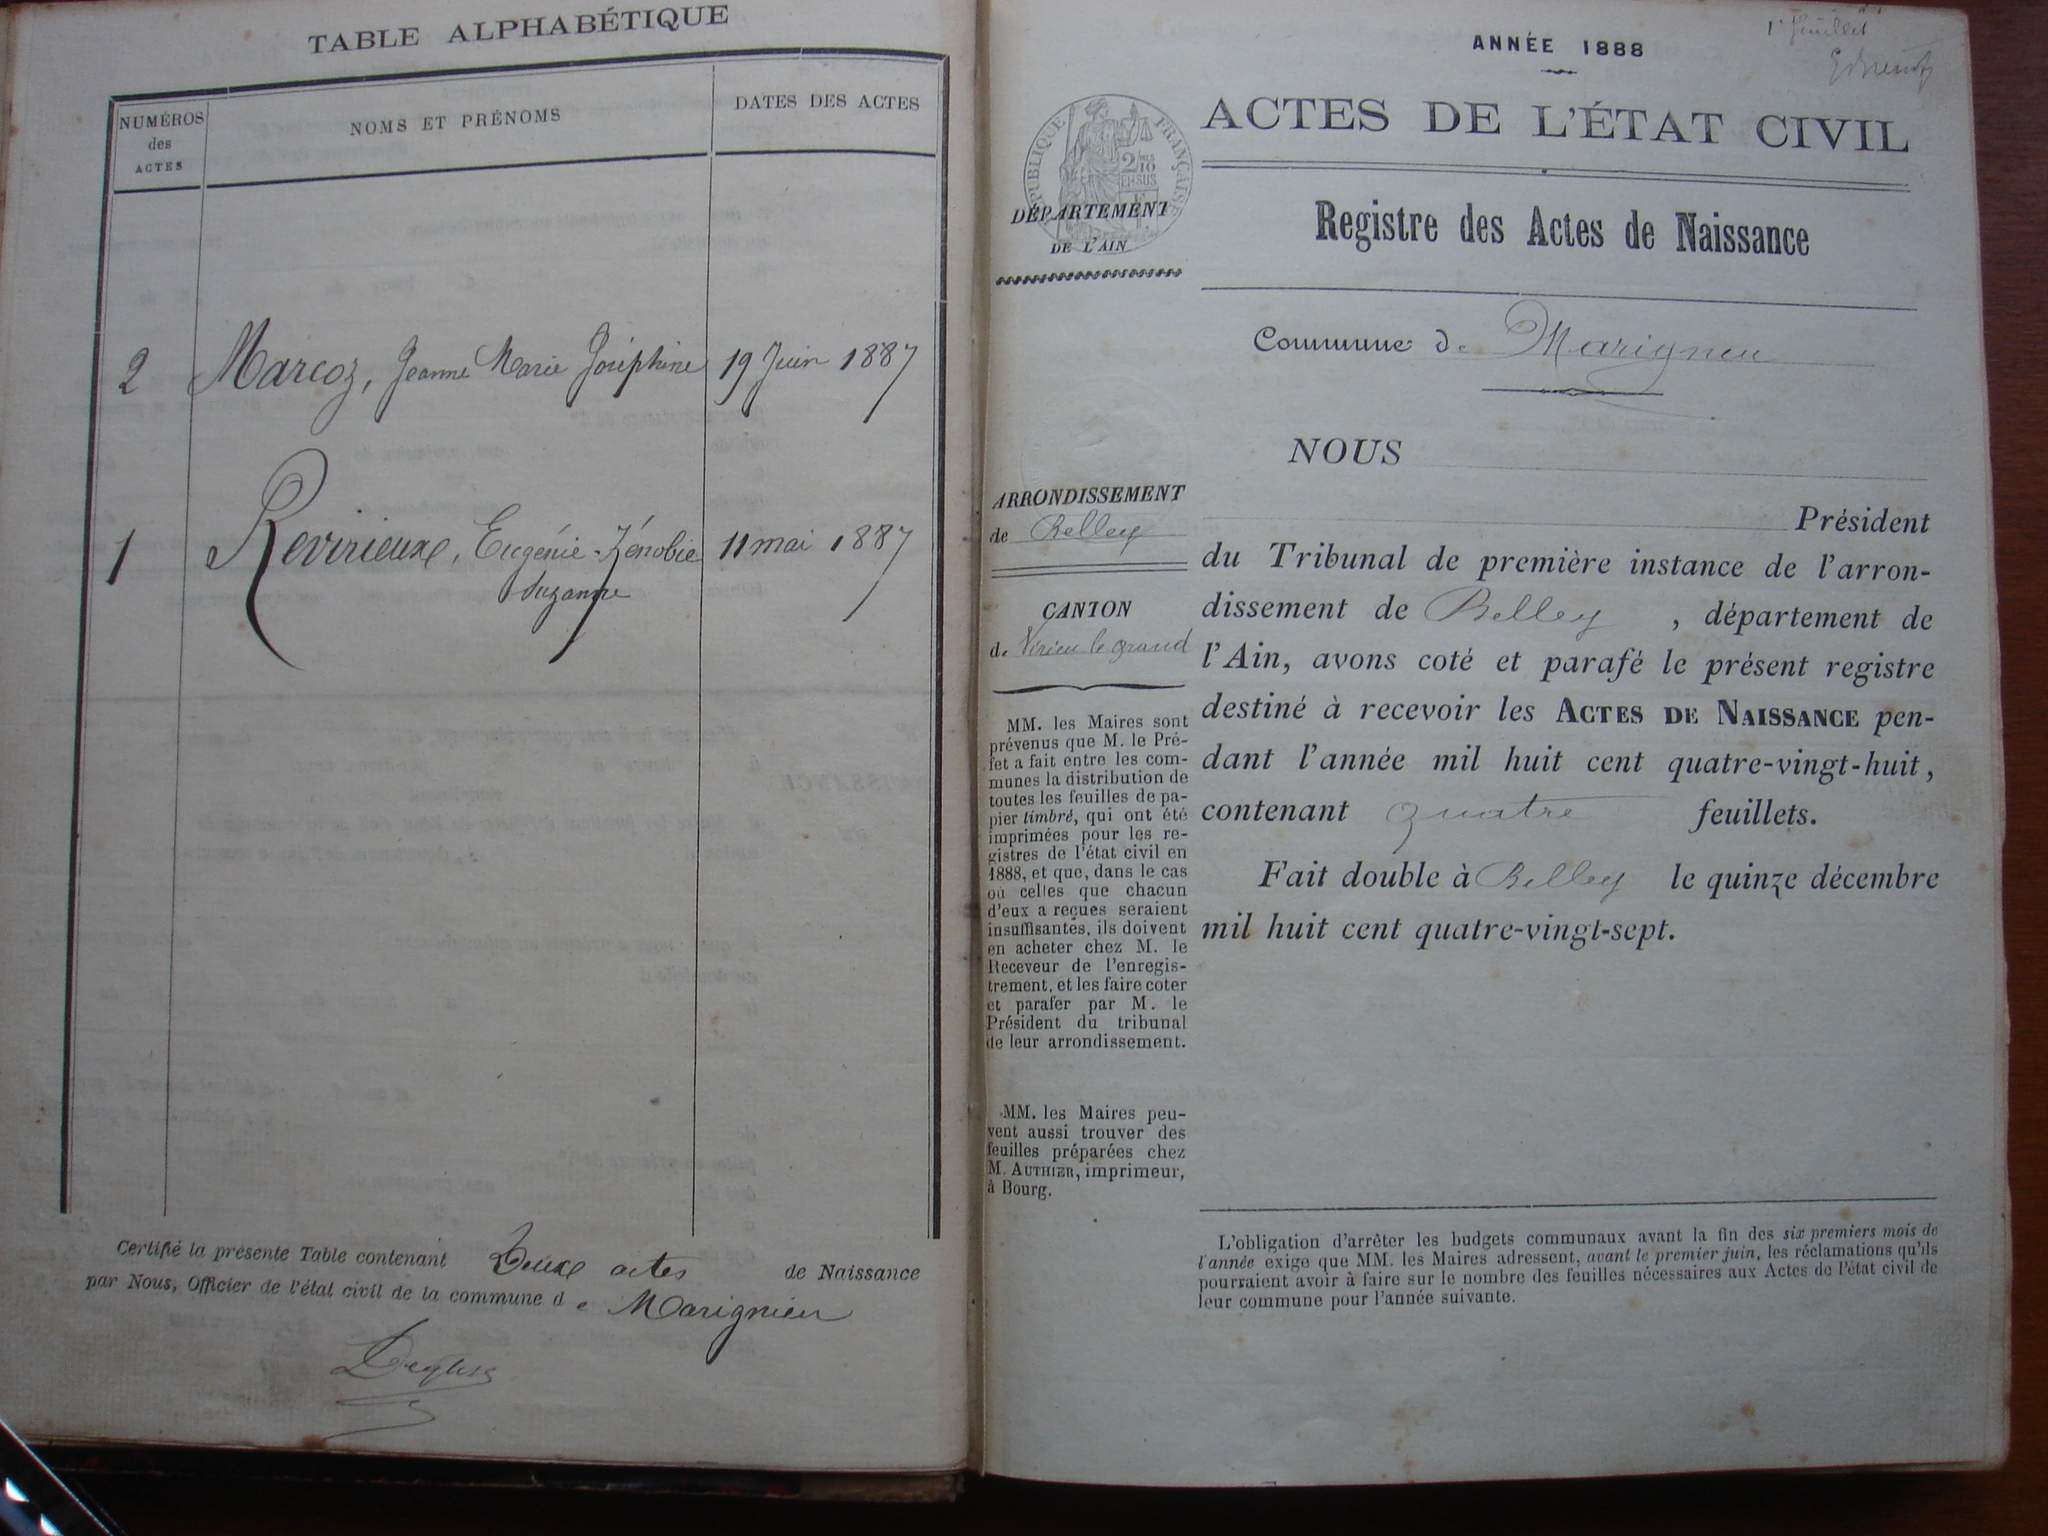 TABLE ALPHABÉTIQUE
NUMÉROS
des
ACTES
NOMS ET PRÉNOMS
DATES DES ACTES
2 Marcoz, Jeanne Marie Joséphine 19 Juin 1887
1 Revirieux, Eugénie-Zénobie 11 mai 1887
Suzanne
Certifié la présente Table contenant Deux actes de Naissance
par Nous, Officier de l'état civil de la commune d e Marignieu
1er feuillet
ANNÉE 1888
RÉPUBLIQUE FRANÇAISE
2/10
EN SUS
DÉPARTEMENT
DE L'AIN
ACTES DE L'ÉTAT CIVIL
Registre des Actes de Naissance
Commune de Marignieu
ARRONDISSEMENT
de Belley
CANTON
de Virieu le grand
MM. les Maires sont
prévenus que M. le Pré-
fet a fait entre les com-
munes la distribution de
toutes les feuilles de pa-
pier timbré, qui ont été
imprimées pour les re-
gistres de l'état civil en
1888, et que, dans le cas
où celles que chacun
d'eux a reçues seraient
insuffisantes, ils doivent
en acheter chez M. le
Receveur de l'enregis-
trement, et les faire coter
et parafer par M. le
Président du tribunal
de leur arrondissement.
MM. les Maires peu-
vent aussi trouver des
feuilles préparées chez
M. AUTHIER, imprimeur,
à Bourg.
NOUS
Président
du Tribunal de première instance de l'arron-
dissement de Belley , département de
l'Ain, avons coté et parafé le présent registre
destiné à recevoir les ACTES DE NAISSANCE pen-
dant l'année mil huit cent quatre-vingt-huit,
contenant quatre feuillets.
Fait double à Belley le quinze décembre
mil huit cent quatre-vingt-sept.
L'obligation d'arrêter les budgets communaux avant la fin des six premiers mois de
l'année exige que MM. les Maires adressent, avant le premier juin, les réclamations qu'ils
pourraient avoir à faire sur le nombre des feuilles nécessaires aux Actes de l'état civil de
leur commune pour l'année suivante.